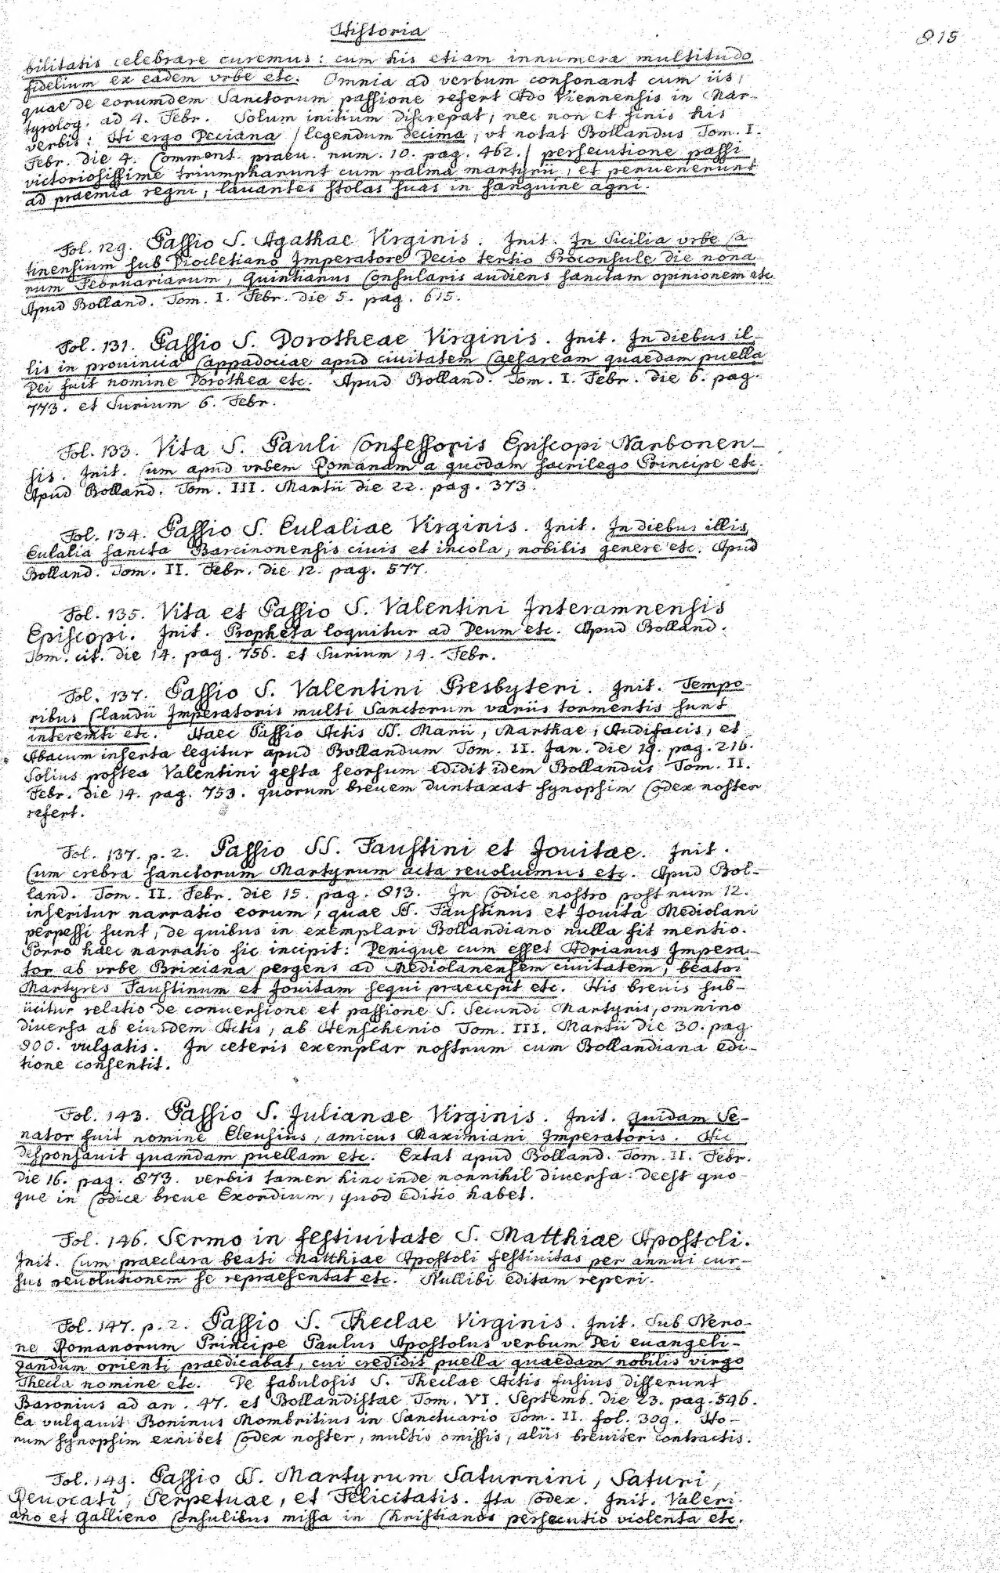 Historia
815
bilitatis celebrare curemus: cum his etiam innumera multitudo
fidelium ex eadem vrbe etc. Omnia ad verbum consonant cum iis,
quae de eorumdem Sanctorum passione refert Ado Viennensis in Mar-
tyrolog. ad 4. Febr. Solum initium discrepat, nec non et finis his
verbis: Hi ergo Deciana (legendum decima, vt notat Bollandus Tom. I.
Febr. die 4. Comment. praeu. num. 10. pag. 462.) persecutione passi
victoriosissime triumpharunt cum palma martyrii, et peruenerunt
ad praemia regni, lauantes stolas suas in sanguine agni.
Fol. 129. Passio S. Agathae Virginis. Init. In Sicilia vrbe Ca-
tinensium sub Diocletiano Imperatore Decio tertio Proconsule die nona-
rum Februariarum, Quintianus Consularis audiens sanctam opinionem etc.
Apud Bolland. Tom. I. Febr. die 5. pag. 615.
Fol. 131. Passio S. Dorotheae Virginis. Init. In diebus il-
lis in prouincia Cappadociae apud ciuitatem Caesaream quaedam puella
Dei fuit nomine Dorothea etc. Apud Bolland. Tom. I. Febr. die 6. pag.
773. et Surium 6. Febr.
Fol. 133. Vita S. Pauli Confessoris Episcopi Narbonen-
sis. Init. Cum apud vrbem Romanam a quodam sacrilego Principe etc.
Apud Bolland. Tom. III. Martii die 22. pag. 373.
Fol. 134. Passio S. Eulaliae Virginis. Init. In diebus illis
Eulalia sancta Barcinonensis ciuis et incola, nobilis genere etc. Apud
Bolland. Tom. II. Febr. die 12. pag. 577.
Fol. 135. Vita et Passio S. Valentini Interamnensis
Episcopi. Init. Propheta loquitur ad Deum etc. Apud Bolland.
Tom. cit. die 14. pag. 756. et Surium 14. Febr.
Fol. 137. Passio S. Valentini Presbyteri. Init. Tempo-
ribus Claudii Imperatoris multi Sanctorum variis tormentis sunt
interemti etc. Haec Passio Actis SS. Marii, Marthae, Audifacis, et
Abacum inserta legitur apud Bollandum Tom. II. Jan. die 19. pag. 216.
Solius postea Valentini gesta seorsum edidit idem Bollandus Tom. II.
Febr. die 14. pag. 753. quorum breuem duntaxat synopsim Codex noster
refert.
Fol. 137. p. 2. Passio SS. Faustini et Jouitae. Init.
Cum crebra sanctorum Martyrum acta reuoluimus etc. Apud Bol-
land. Tom. II. Febr. die 15. pag. 813. In Codice nostro post num 12.
inseritur narratio eorum, quae SS. Faustinus et Jouita Mediolani
perpessi sunt, de quibus in exemplari Bollandiano nulla fit mentio.
Porro haec narratio sic incipit: Denique cum esset Adrianus Impera-
tor ab vrbe Brixiana pergens ad Mediolanensem ciuitatem, beatos
Martyres Faustinum et Jouitam sequi praecepit etc. His breuis sub-
iicitur relatio de conuersione et passione S. Secundi Martyris, omnino
diuersa ab eiusdem Actis, ab Henschenio Tom. III. Martii die 30. pag.
800. vulgatis. In ceteris exemplar nostrum cum Bollandiana edi-
tione consentit.
Fol. 143. Passio S. Julianae Virginis. Init. Quidam Se-
nator fuit nomine Eleusius, amicus Maximiani Imperatoris. Hic
desponsauit quamdam puellam etc. Extat apud Bolland. Tom. II. Febr.
die 16. pag. 873. verbis tamen hinc inde nonnihil diuersa: deest quo-
que in Codice breue Exordium, quod Editio habet.
Fol. 146. Sermo in festiuitate S. Matthiae Apostoli.
Init. Cum praeclara beati Matthiae Apostoli festiuitas per annui cur-
sus reuolutionem se repraesentat etc. Nullibi editam reperi.
Fol. 147. p. 2. Passio S. Theclae Virginis. Init. Sub Nero-
ne Romanorum Principe Paulus Apostolus verbum Dei euangeli-
zandum orienti praedicabat, cui credidit puella quaedam nobilis virgo
Thecla nomine etc. De fabulosis S. Theclae Actis fusius disserunt
Baronius ad an. 47. et Bollandistae Tom. VI. Septemb. die 23. pag. 546.
Ea vulgauit Boninus Mombritius in Sanctuario Tom. II. fol. 309. Ho-
rum synopsim exhibet Codex noster, multis omissis, aliis breuiter contractis.
Fol. 149. Passio SS. Martyrum Saturnini, Saturi,
Reuocati, Perpetuae, et Felicitatis. Ita Codex. Init. Valeri-
ano et Gallieno Consulibus missa in Christianos persecutio violenta etc.